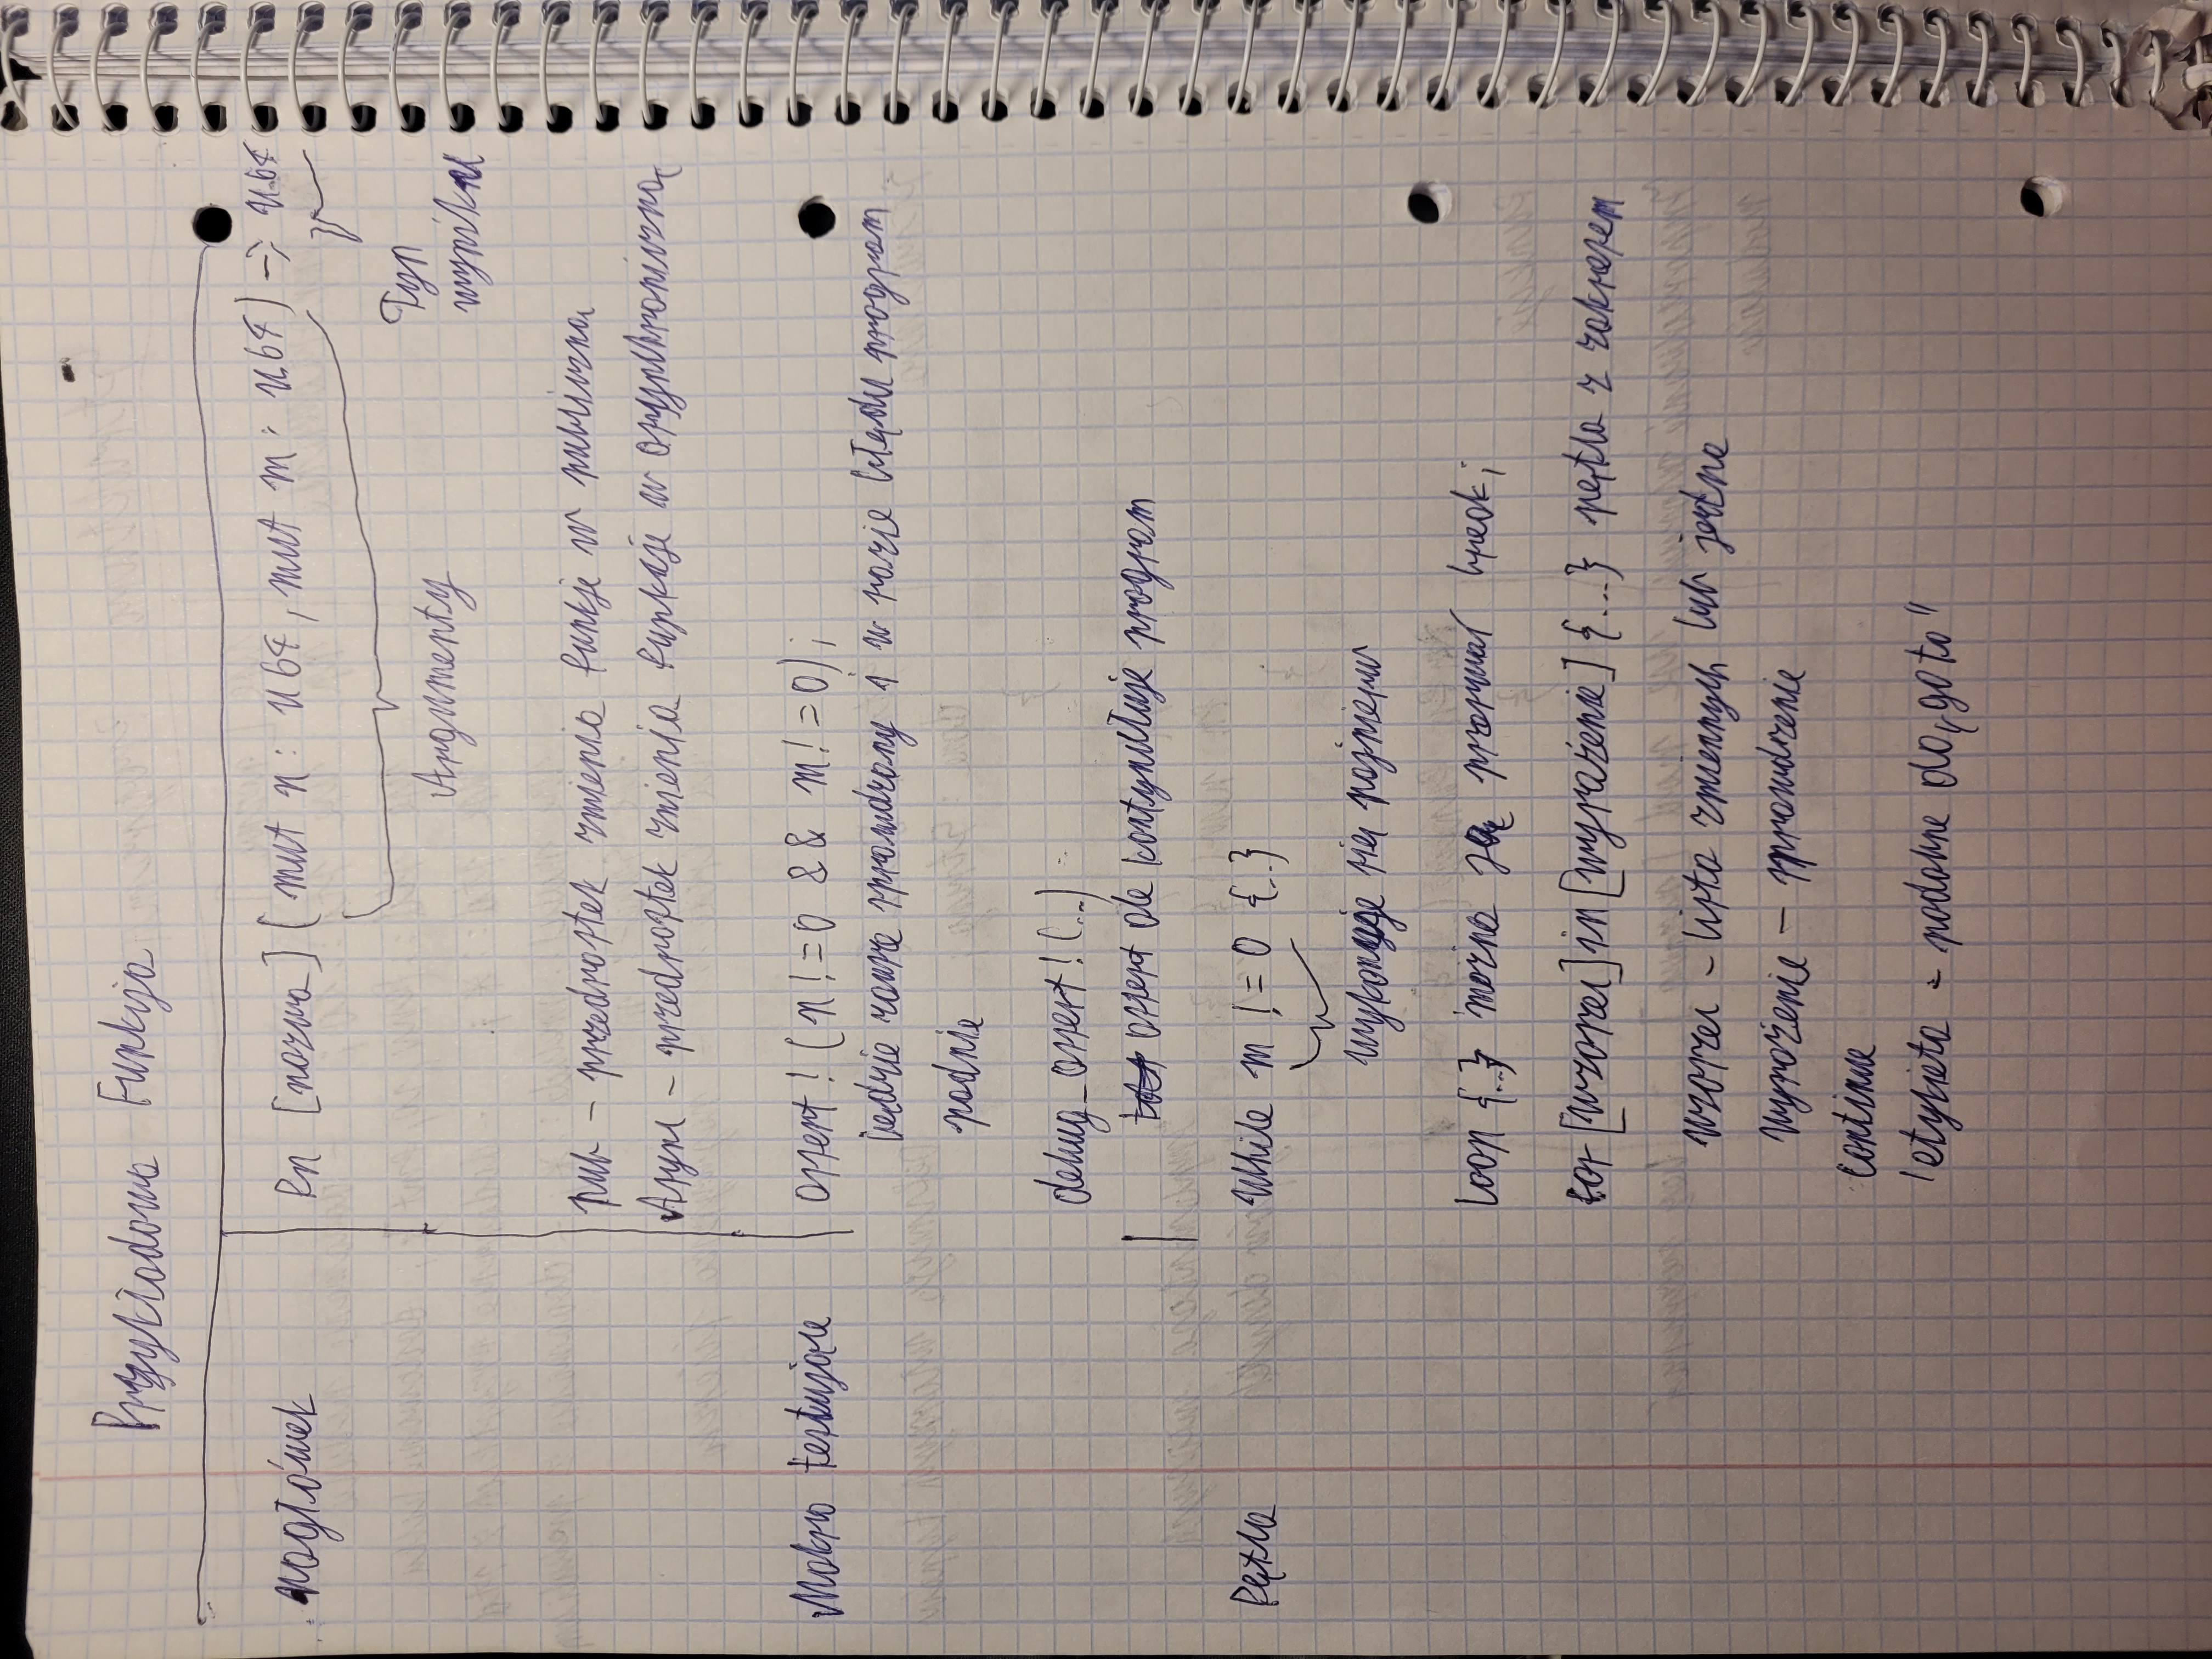 Przykładowa Funkcja
nagłówek
fn [nazwa] (mut n: u64, mut m: u64) -> u64
Argumenty
Typ
wyniku
pub – przedrostek zmienia funkje w publiczną
Async – przedrostek zmienia funkcje w asynchroniczną
Makro testujące
assert! (n != 0 && m != 0);
będzie zawsze sprawdzany i w razie błędu program
padnie
debug_assert! (...)
assert ale kontynułuje program
Pętla
While m != 0 {..}
wykonuje się pojniew
loop {...} można ją przerwać break;
for [wzorzec] in [wyrażenie] {...} pętla z zakresem
wzorzec – lista zmiennych lub jedna
wyrażenie – sprawdzenie
continue
'etykieta - podobne do „goto"